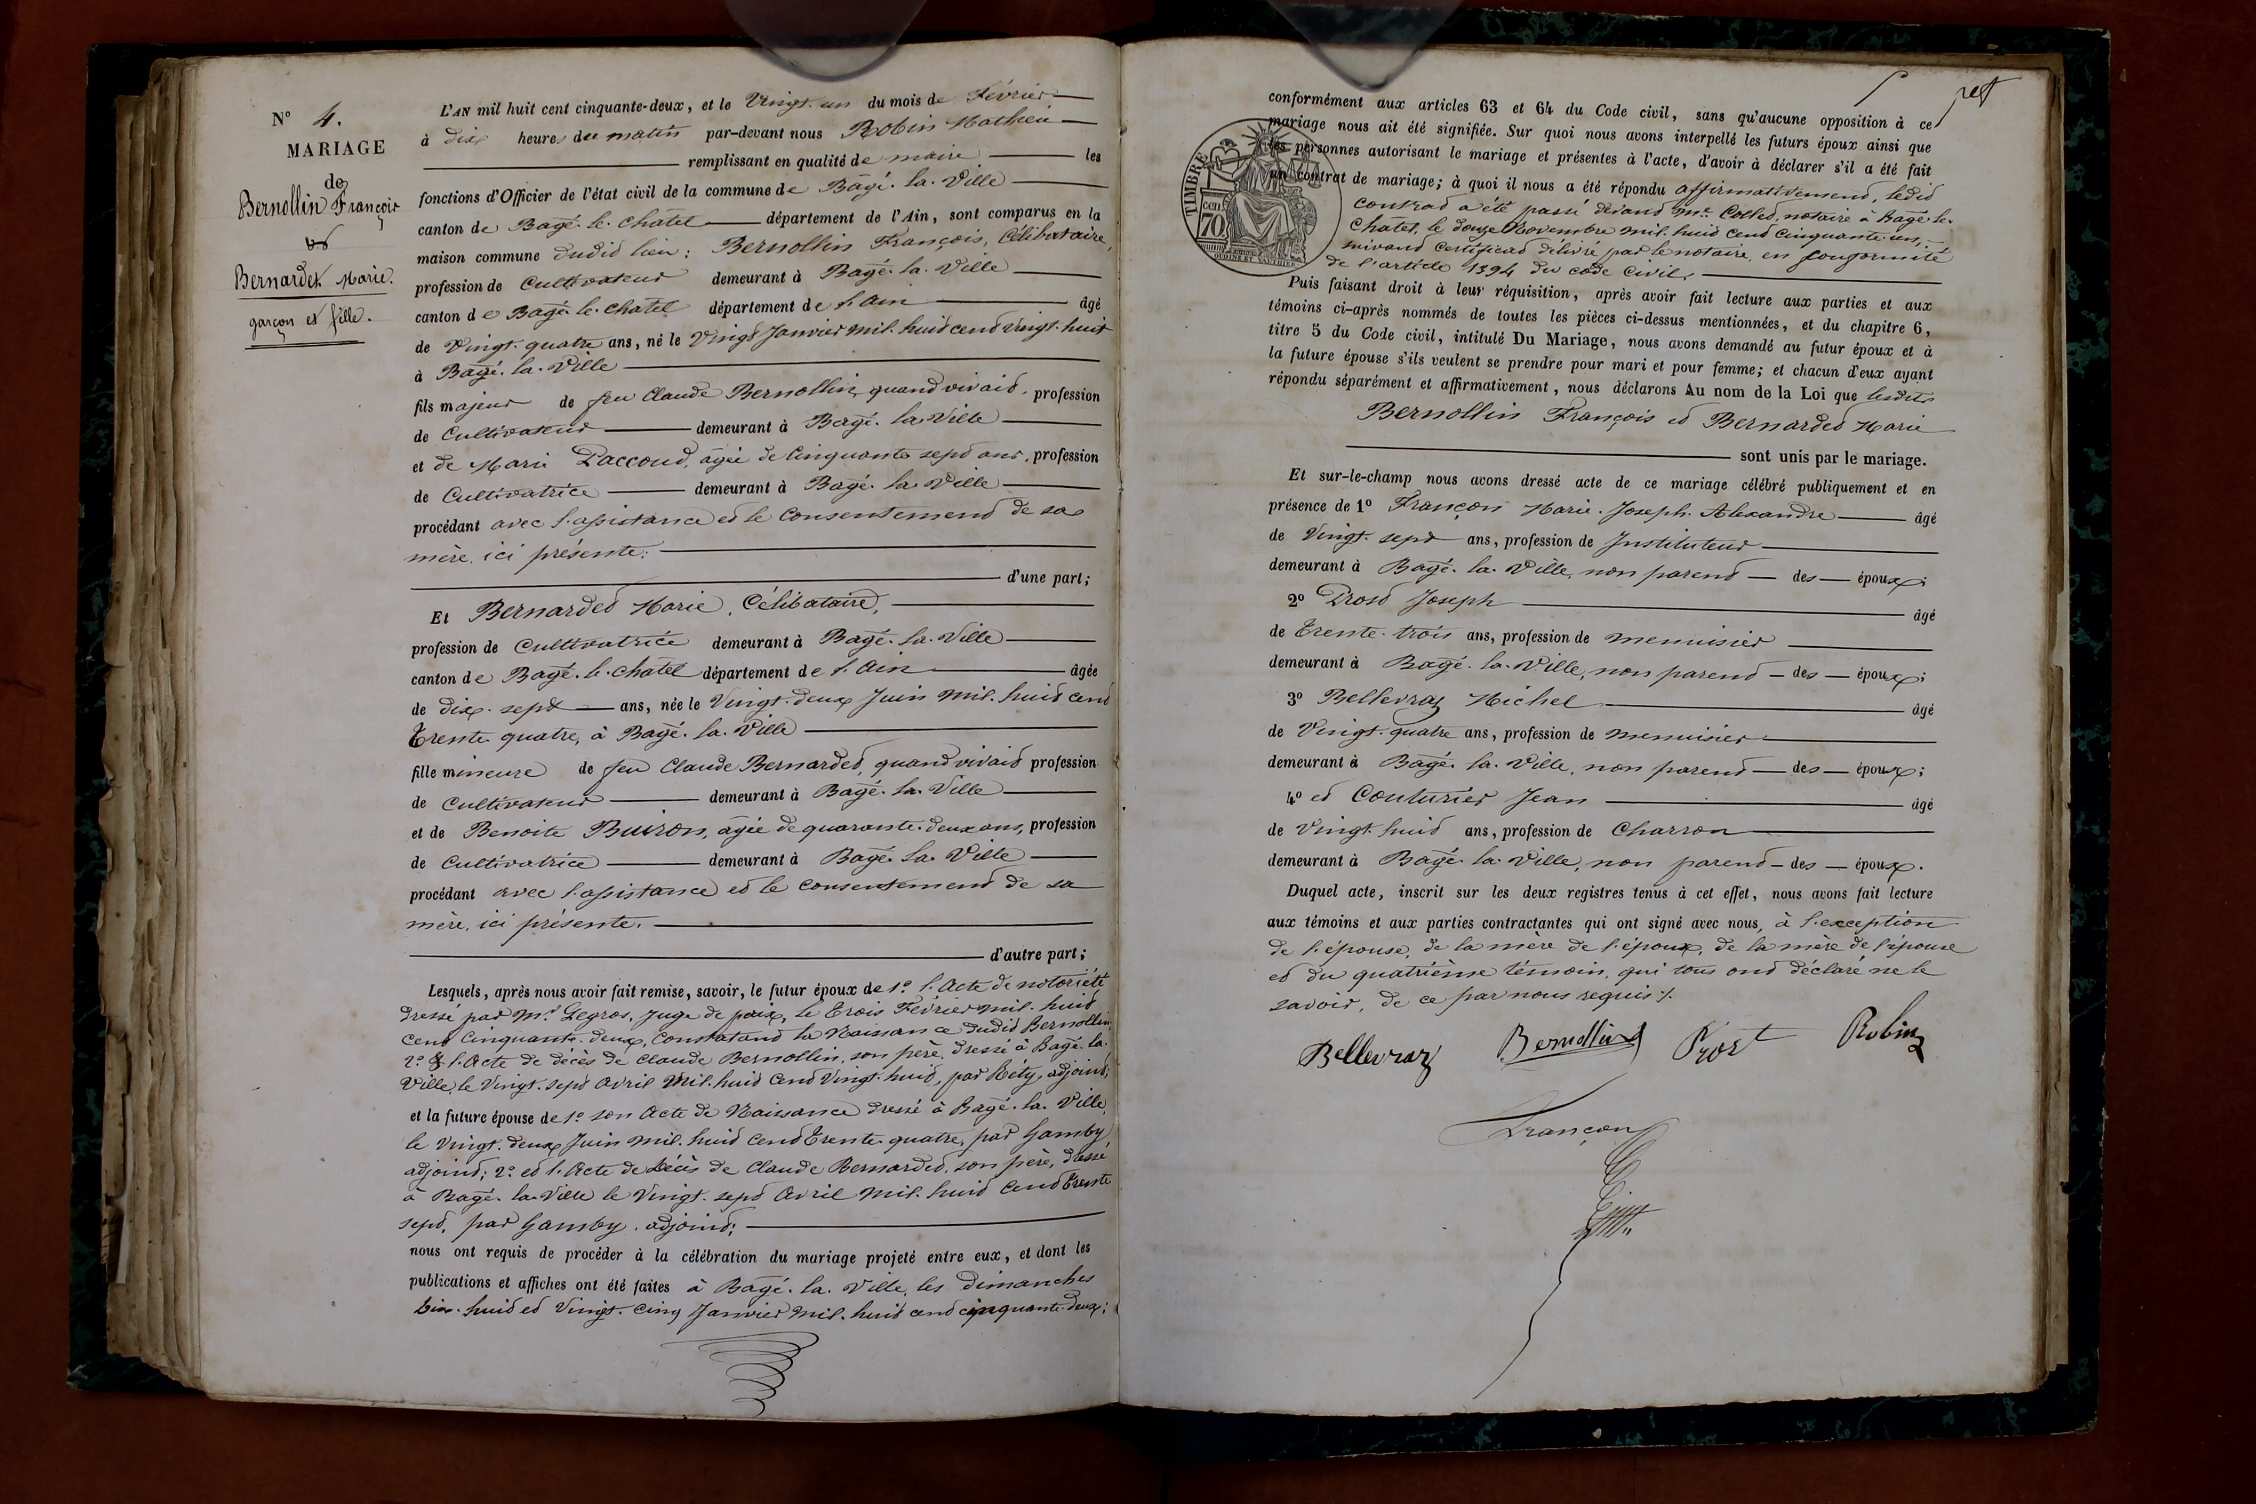 N° 4.
MARIAGE
de
Bernollin François
et
Bernardet Marie.
garçon et fille.
L'AN mil huit cent cinquante-deux, et le Vingt-un du mois de Février
à dix heures du matin par-devant nous Robin Mathieu
remplissant en qualité de maire les
fonctions d'Officier de l'état civil de la commune de Bâgé-la-Ville
canton de Bagé-le-Chatel département de l'Ain, sont comparus en la
maison commune dudit lieu : Bernollin François, Célibataire,
profession de Cultivateur demeurant à Bagé-la-Ville
canton de Bagé-le-Chatel département de l'Ain âgé
de Vingt-quatre ans, né le Vingt Janvier mil-huit cent vingt-huit
à Bagé-la-Ville
fils majeur de feu Claude Bernollin, quand vivait, profession
de Cultivateur demeurant à Bagé-la-Ville
et de Marie Paccoud, âgée de Cinquante sept ans, profession
de Cultivatrice demeurant à Bagé-la-Ville
procédant avec l'assistance et le Consentement de sa
mère, ici présente;
d'une part;
Et Bernardet Marie, Célibataire,
profession de Cultivatrice demeurant à Bagé-la-Ville
canton de Bagé-le-Chatel département de l'Ain âgée
de dix-sept ans, née le Vingt-deux Juin mil-huit cent
Trente quatre, à Bagé-la-Ville
fille mineure de feu Claude Bernardet, quand vivait profession
de Cultivateur demeurant à Bagé-la-Ville
et de Benoite Buiron, âgée de quarante-deux ans, profession
de Cultivatrice demeurant à Bagé-la-Ville
procédant avec l'assistance et le consentement de sa
mère, ici présente.
d'autre part;
Lesquels, après nous avoir fait remise, savoir, le futur époux de 1° l'Acte de notoriété
dressé par Mr Legros, Juge de paix, le Trois Février mil-huit
cent Cinquante-deux, Constatant la Naissance dudit Bernollin,
2° & l'Acte de décès de Claude Bernollin, son père, dressé à Bagé-la-
Ville, le Vingt-sept Avril Mil-huit Cent Vingt-huit, par Réty, adjoint;
et la future épouse de 1° son Acte de Naissance dressé à Bagé-la-Ville,
le Vingt-deux Juin mil-huit cent Trente-quatre, par Gamby,
adjoint; 2° et l'Acte de décès de Claude Bernardet, son père, dressé
à Bagé-la-Ville le Vingt-sept Avril mil-huit Cent Trente
sept, par Gamby, adjoint;
nous ont requis de procéder à la célébration du mariage projeté entre eux, et dont les
publications et affiches ont été faites à Bagé-la-Ville, les dimanches
dix-huit et Vingt-cinq Janvier mil-huit cent cinquante-deux;
conformément aux articles 63 et 64 du Code civil, sans qu'aucune opposition à ce
mariage nous ait été signifiée. Sur quoi nous avons interpellé les futurs époux ainsi que
les personnes autorisant le mariage et présentes à l'acte, d'avoir à déclarer s'il a été fait
un contrat de mariage; à quoi il nous a été répondu affirmativement, ledit
contrat a été passé devant Me Collet, notaire à Bagé-le-
Chatel, le douze Novembre mil-huit cent cinquante-un,
suivant Certificat délivré par le notaire, en conformité
de l'article 1394 du code civil,
TIMBRE
70 cen
Puis faisant droit à leur réquisition, après avoir fait lecture aux parties et aux
témoins ci-après nommés de toutes les pièces ci-dessus mentionnées, et du chapitre 6,
titre 5 du Code civil, intitulé Du Mariage, nous avons demandé au futur époux et à
la future épouse s'ils veulent se prendre pour mari et pour femme; et chacun d'eux ayant
répondu séparément et affirmativement, nous déclarons Au nom de la Loi que lesdits
Bernollin François et Bernardet Marie
sont unis par le mariage.
Et sur-le-champ nous avons dressé acte de ce mariage célébré publiquement et en
présence de 1° Françon Marie-Joseph-Alexandre âgé
de Vingt-sept ans, profession de Instituteur
demeurant à Bagé-la-Ville, non parent des époux;
2° Prost Joseph âgé
de Trente-trois ans, profession de menuisier
demeurant à Bagé-la-Ville, non parent des époux;
3° Bellevraz Michel âgé
de Vingt-quatre ans, profession de menuisier
demeurant à Bagé-la-Ville, non parent des époux;
4° et Couturier Jean âgé
de Vingt-huit ans, profession de Charron
demeurant à Bagé-la-Ville, non parent des époux.
Duquel acte, inscrit sur les deux registres tenus à cet effet, nous avons fait lecture
aux témoins et aux parties contractantes qui ont signé avec nous, à l'exception
de l'épouse, de la mère de l'époux, de la mère de l'épouse
et du quatrième témoin, qui tous ont déclaré ne le
savoir, de ce par nous requis ./.
Bellevraz Bernollin Prost Robin
Françon